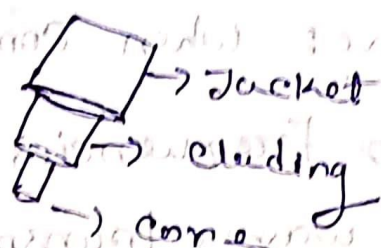 Jacket
Cladding
Core